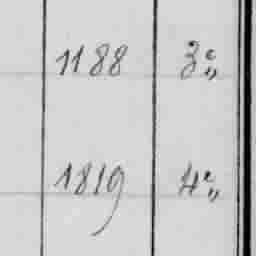 1188 3e„
1819 4e„